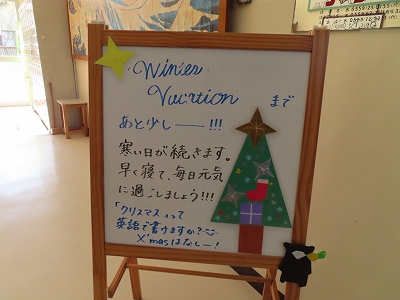 Winter
Vacation まで
あと少しーー!!!
寒い日が続きます。
早く寝て、毎日元気
に過ごしましょう!!!
「クリスマス」って
英語で書けますか?
X'masはなしー!